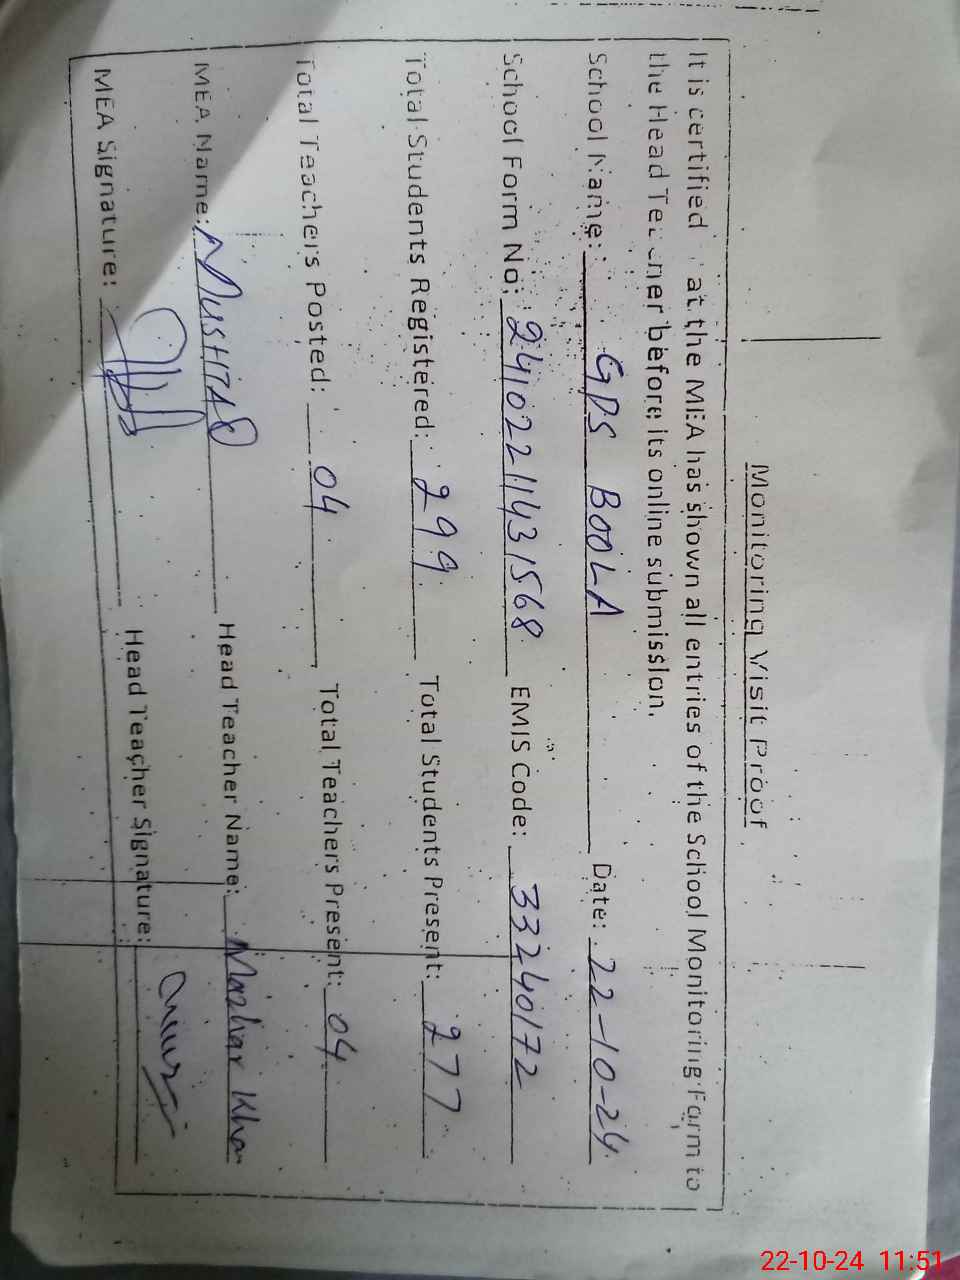 Monitoring Visit Proof
It is certified at the MEA has shown all entries of the School Monitoring Form to
the Head Teacher before its online submission.
School Name: GPS BOOLA Date: 22-10-24
School Form No: 24102211431568 EMIS Code: 33240172
Total Students Registered: 299 Total Students Present: 277
Total Teachers Posted: 04 Total Teachers Present: 04
MEA Name: Head Teacher Name: Mazhar Khan
MEA Signature: Head Teacher Signature:
22-10-24 11:51